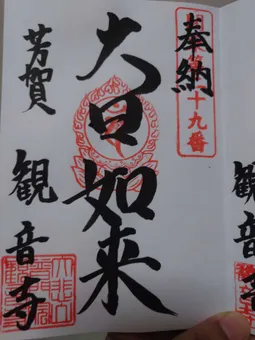 奉納
十九番
大日如来
芳賀
観音寺
観音寺